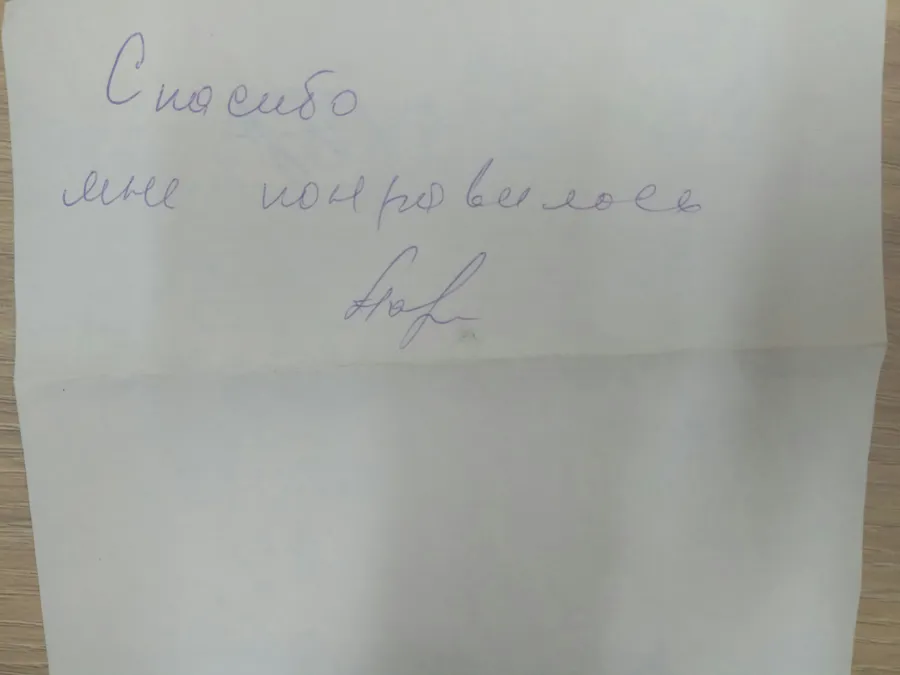 Спасибо
мне понравилось